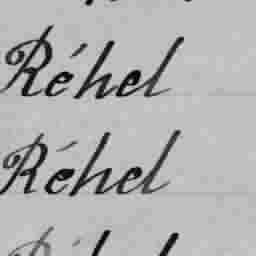 Réhel
Réhel